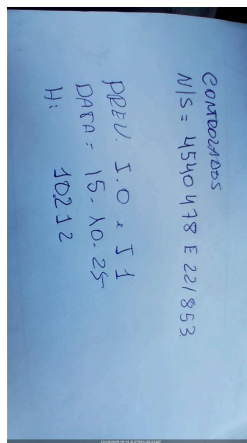 CONTROLADOS
N/S = 4540478 E 221853
PREV. I.0 e I1
DATA = 15-10-25
H: 10212